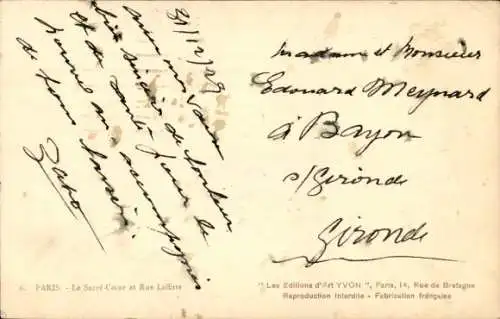 31/12/29
avec nos vœux
bien sincère de bonheur
et de santé pour la
bonne année accompagnés
de bons baisers
Madame et Monsieur
Edouard Meynard
à Bayon
s/Gironde
Gironde
6. PARIS. - Le Sacré-Cœur et Rue Laffitte
"Les Editions d'Art YVON", Paris, 14, Rue de Bretagne
Reproduction Interdite - Fabrication française